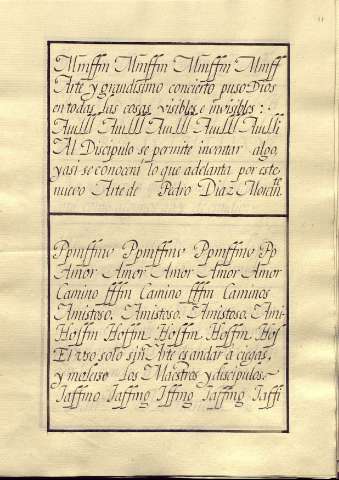 Mmffm Mmffm Mmffm Mmff
Arte y grandisimo concierto puso Dios
en todas las cosas visibles, e invisibles:
Aulll Aulll Aulll Aulll Aulll
Al Discipulo se permite inventar algo,
y asi se conocerá lo que adelanta por este
nuevo Arte de Pedro Diaz Morante
Ppmffms Ppmffms Ppmffms Pp
Amor Amor Amor Amor Amor
Camino fffm Camino fffm Caminos
Amistoso, Amistoso, Amistoso, Ami-
Hoffm Hoffm Hoffm Hoffm Hof
El uso solo sin Arte es andar a ciegas,
y molerse los Maestros y discipulos.
Jaffmg Jaffing Jffing Jaffing Jaffi